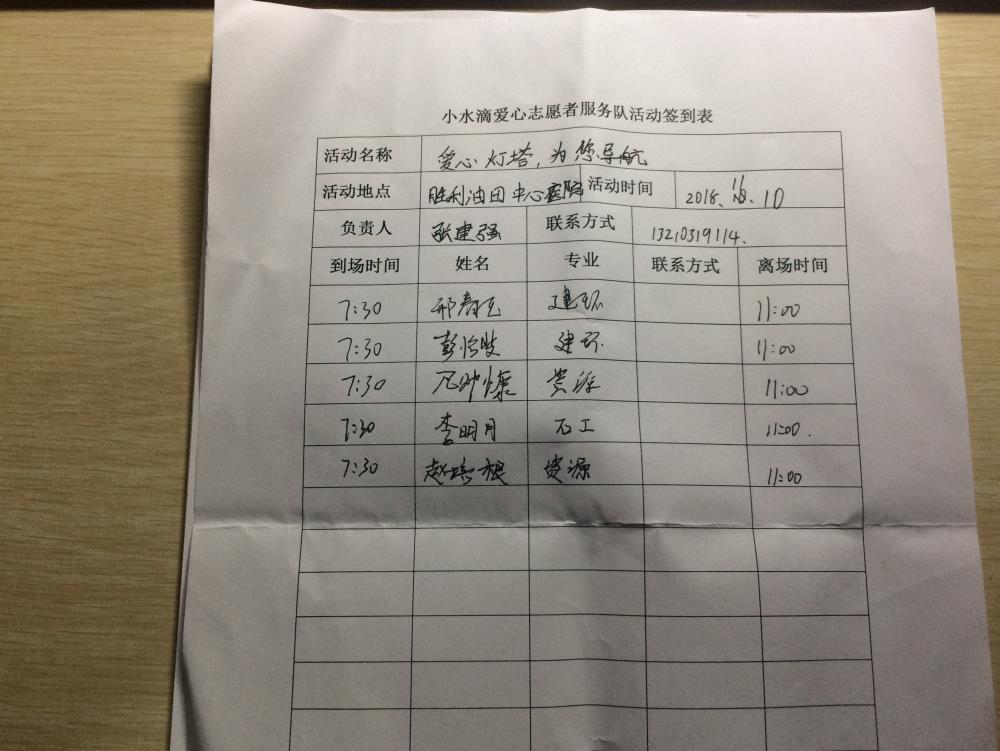 小水滴爱心志愿者服务队活动签到表
活动名称 爱心灯塔,为您导航
活动地点 胜利油田中心医院 活动时间 2018. 11. 10
负责人 张建强 联系方式 13210319114.
到场时间 姓名 专业 联系方式 离场时间
7:30 建环 11:00
7:30 彭怡 建环 11:00
7:30 资源 11:00
7:30 李明月 石工 11:00.
7:30 赵 资源 11:00